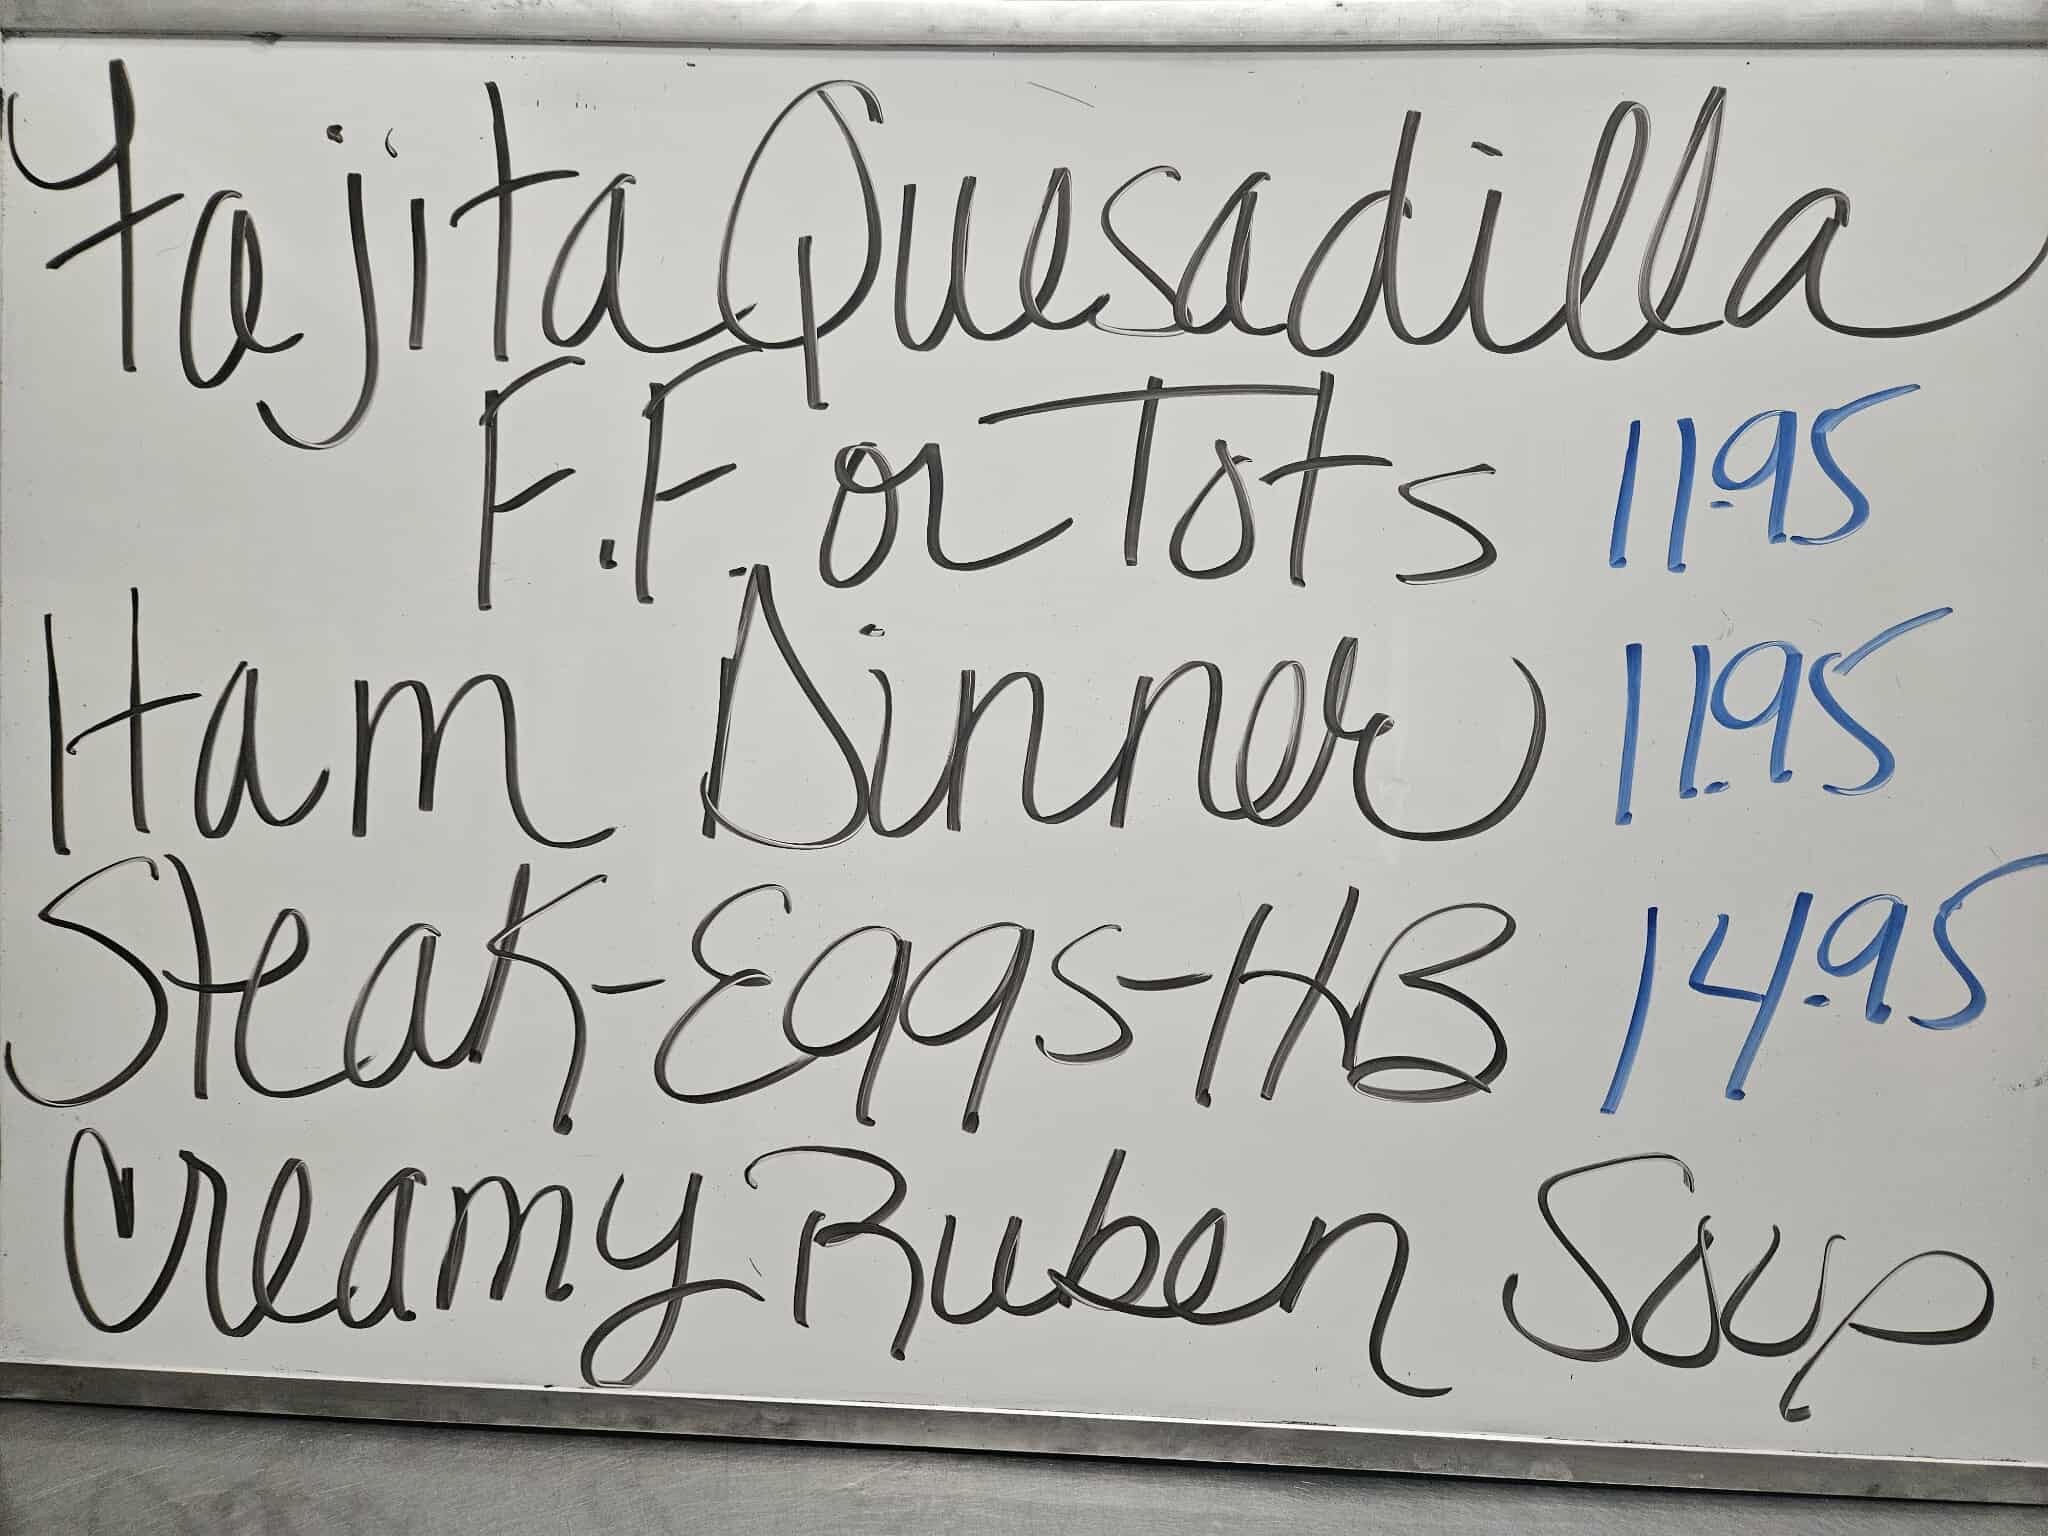 Fajita Quesadilla
F.F. or Tots 11.95
Ham Dinner 11.95
Steak-Eggs-HB 14.95
Creamy Ruben Soup